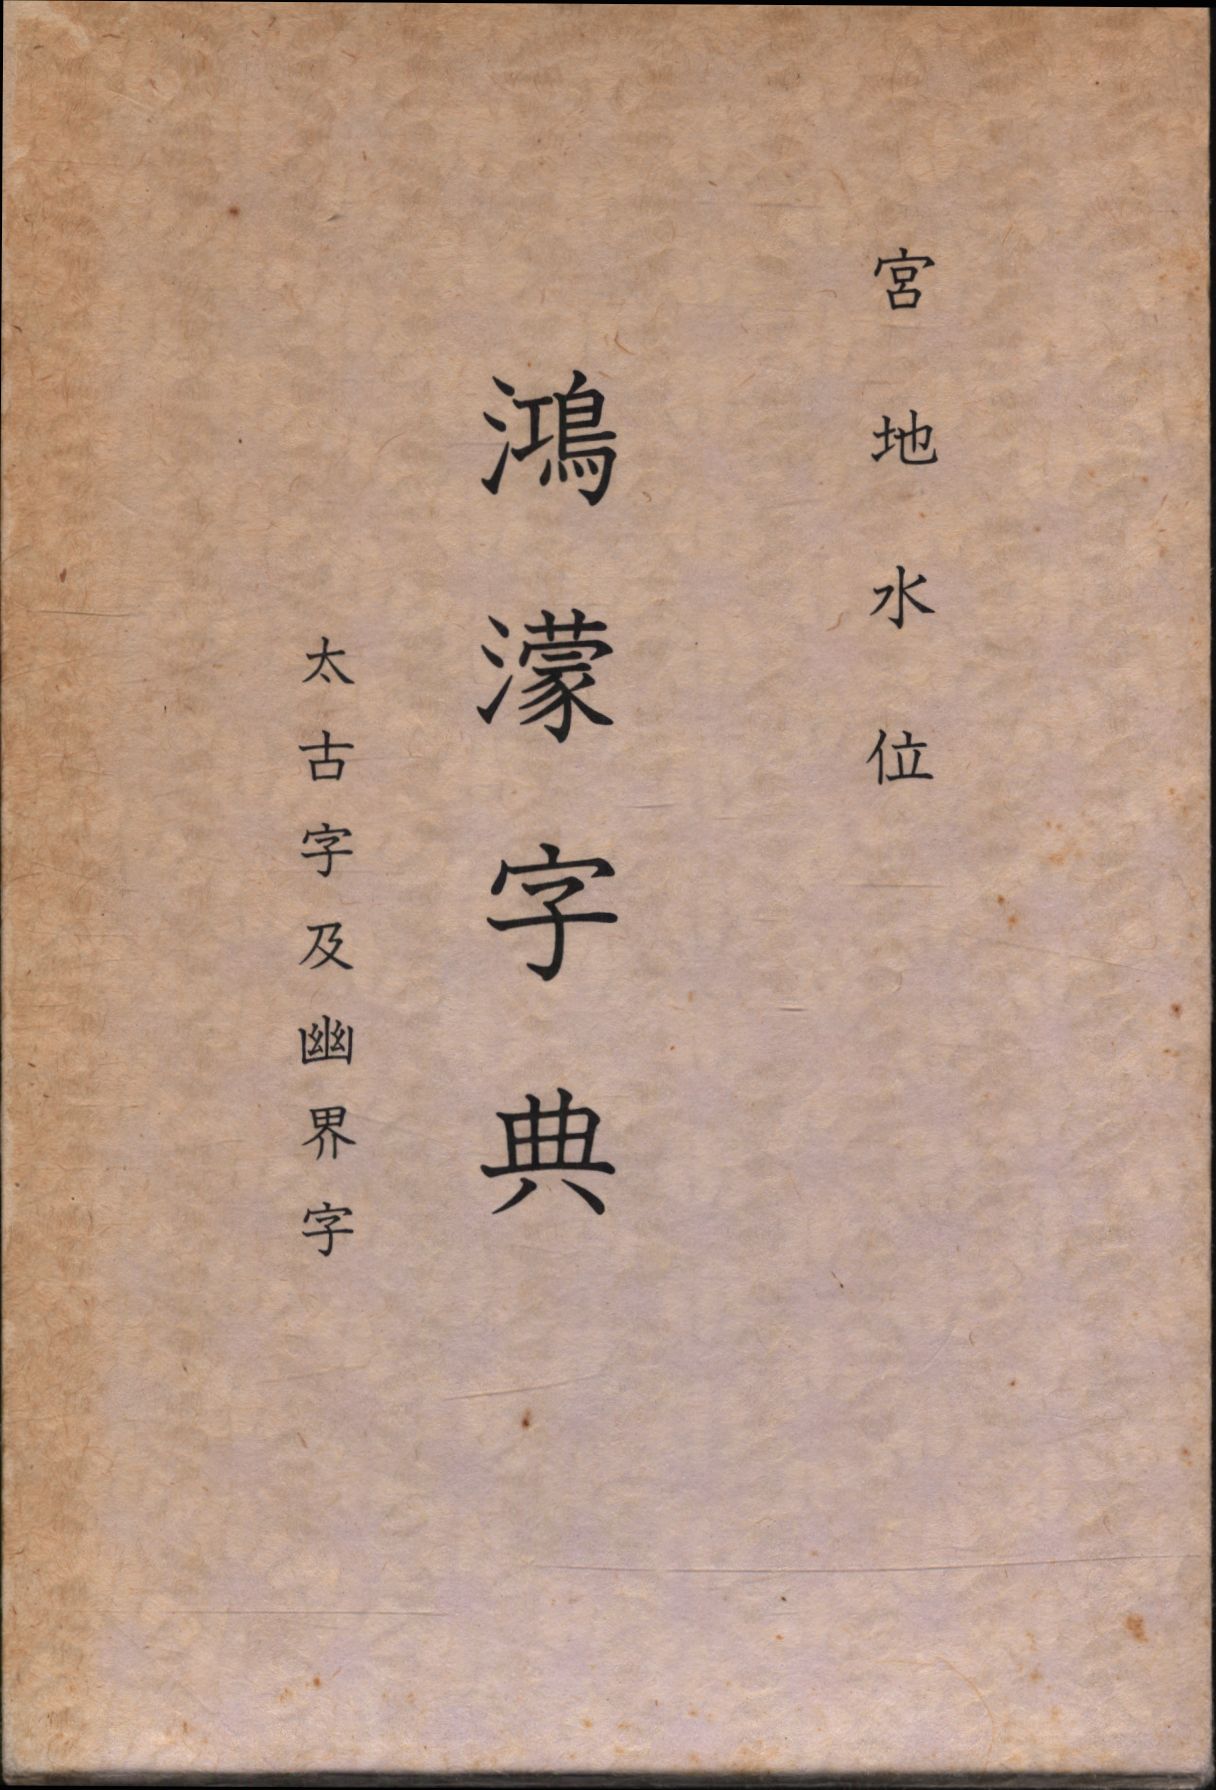 宮地水位
鴻濛字典
太古字及幽界字